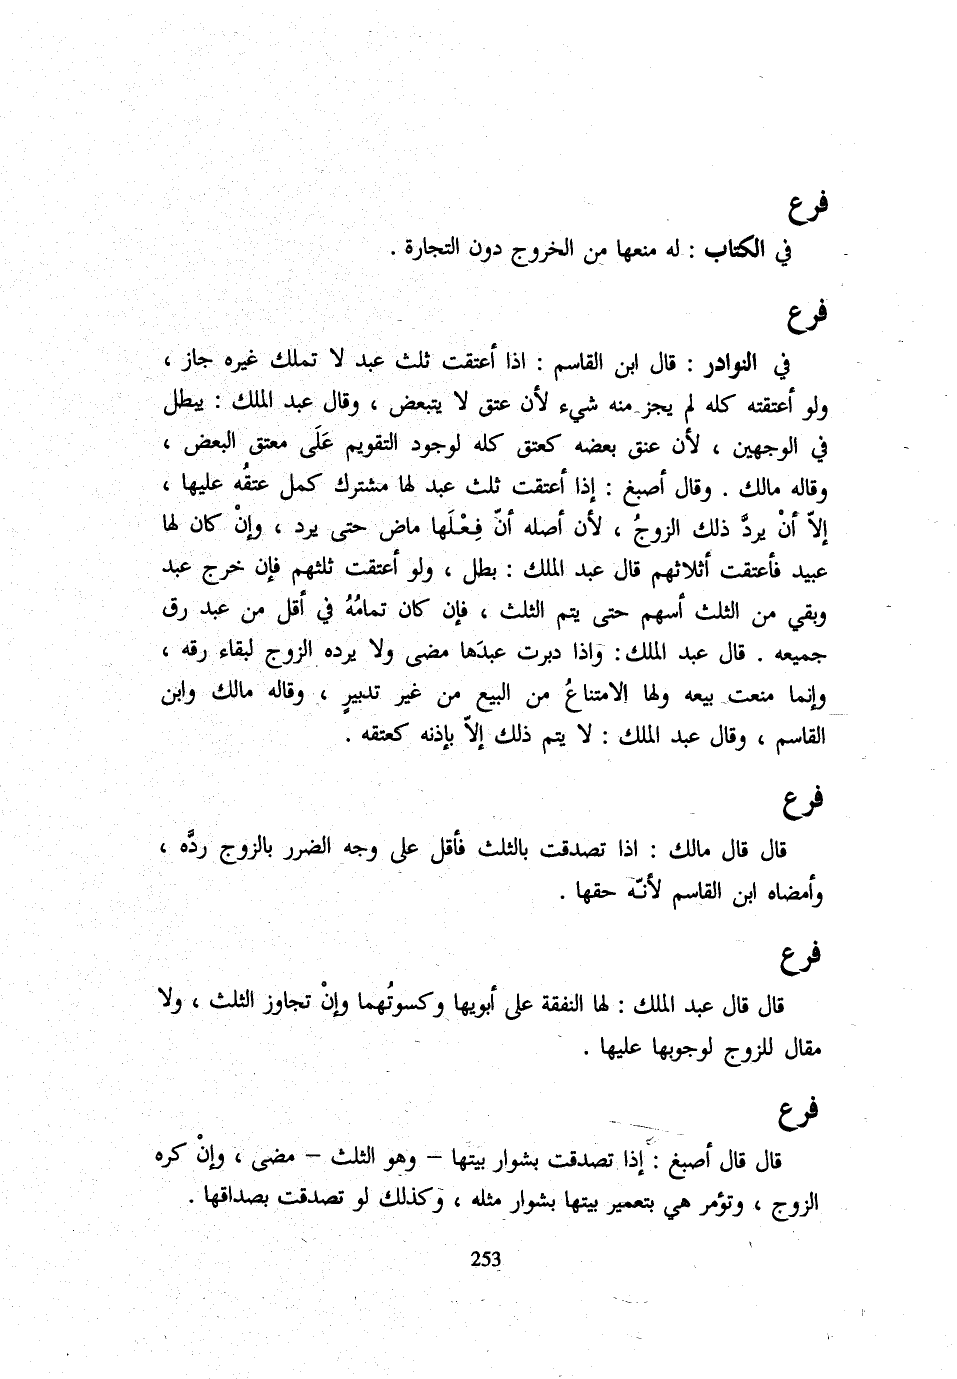 فرع
في الكتاب : له منعها من الخروج دون التجارة .
فرع
في النوادر : قال ابن القاسم : اذا أعتقت ثلث عبد لا تملك غيره جاز ،
ولو أعتقته كله لم يجز منه شيء لأن عتق لا يتبعض ، وقال عبد الملك : يبطل
في الوجهين ، لأن عنق بعضه كعتق كله لوجود التقويم عَلَى معتق البعض ،
وقاله مالك . وقال أصبغ : إذا أعتقت ثلث عبد لها مشترك كمل عتقُه عليها ،
إلاّ أنْ يردَّ ذلك الزوجُ ، لأن أصله أنّ فِعْلَها ماض حتى يرد ، وإنْ كان لها
عبيد فأعتقت أثلاثهم قال عبد الملك : بطل ، ولو أعتقت ثلثهم فإن خرج عبد
وبقي من الثلث أسهم حتى يتم الثلث ، فإن كان تمامُهُ في أقل من عبد رق
جميعه . قال عبد الملك : وَاذا دبرت عبدَها مضى ولا يرده الزوج لبقاء رقه ،
وإنما منعت بيعه ولها الامتناعُ من البيع من غير تدبيرٍ ، وقاله مالك وابن
القاسم ، وقال عبد الملك : لا يتم ذلك إلاّ بإذنه كعتقه .
فرع
قال قال مالك : اذا تصدقت بالثلث فأقل على وجه الضرر بالزوج ردَّه ،
وأمضاه ابن القاسم لأنّه حقها .
فرع
قال قال عبد الملك : لها النفقة على أبويها وكسوتُهما وإنْ تجاوز الثلث ، ولا
مقال للزوج لوجوبها عليها .
فرع
قال قال أصبغ : إذا تصدقت بشوار بيتها – وهو الثلث – مضى ، وإنْ كره
الزوج ، وتؤمر هي بتعمير بيتها بشوار مثله ، وكذلك لو تصدقت بصداقها .
253